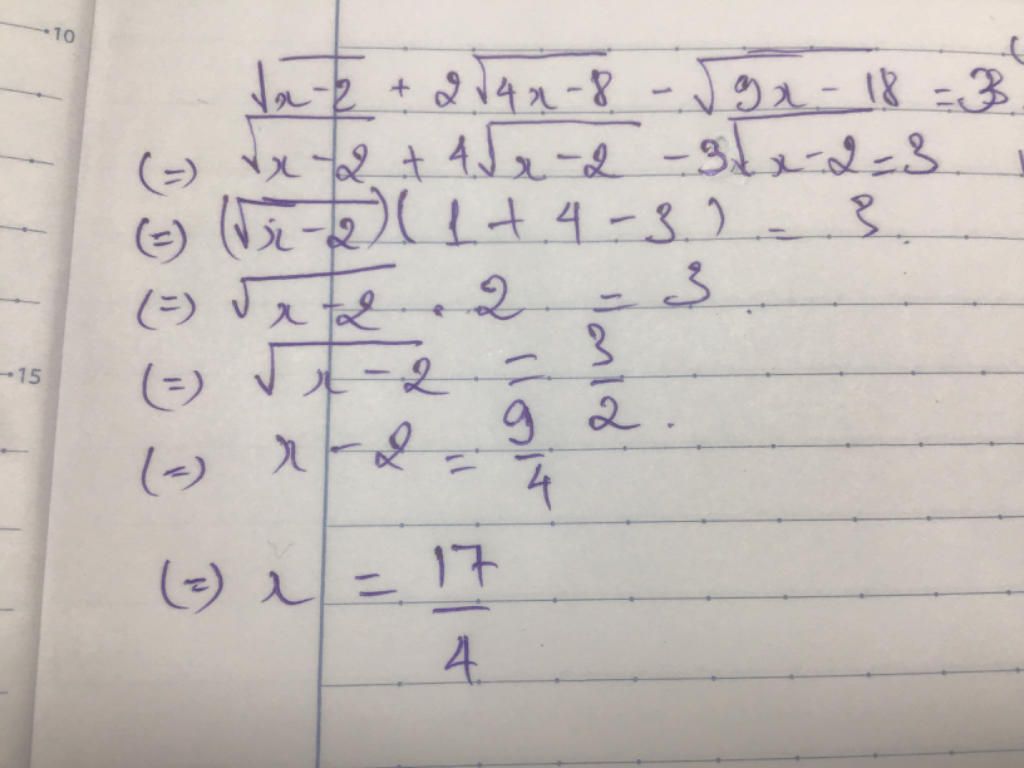 10
√(x-2) + 2√(4x-8) - √(9x-18) = 3
(=) √(x-2) + 4√(x-2) - 3√(x-2) = 3
(=) (√(x-2)) ( 1 + 4 - 3 ) = 3.
(=) √(x-2) . 2 = 3.
15
(=) √(x-2) = 3/2.
(=) x - 2 = 9/4
(=) x = 17/4